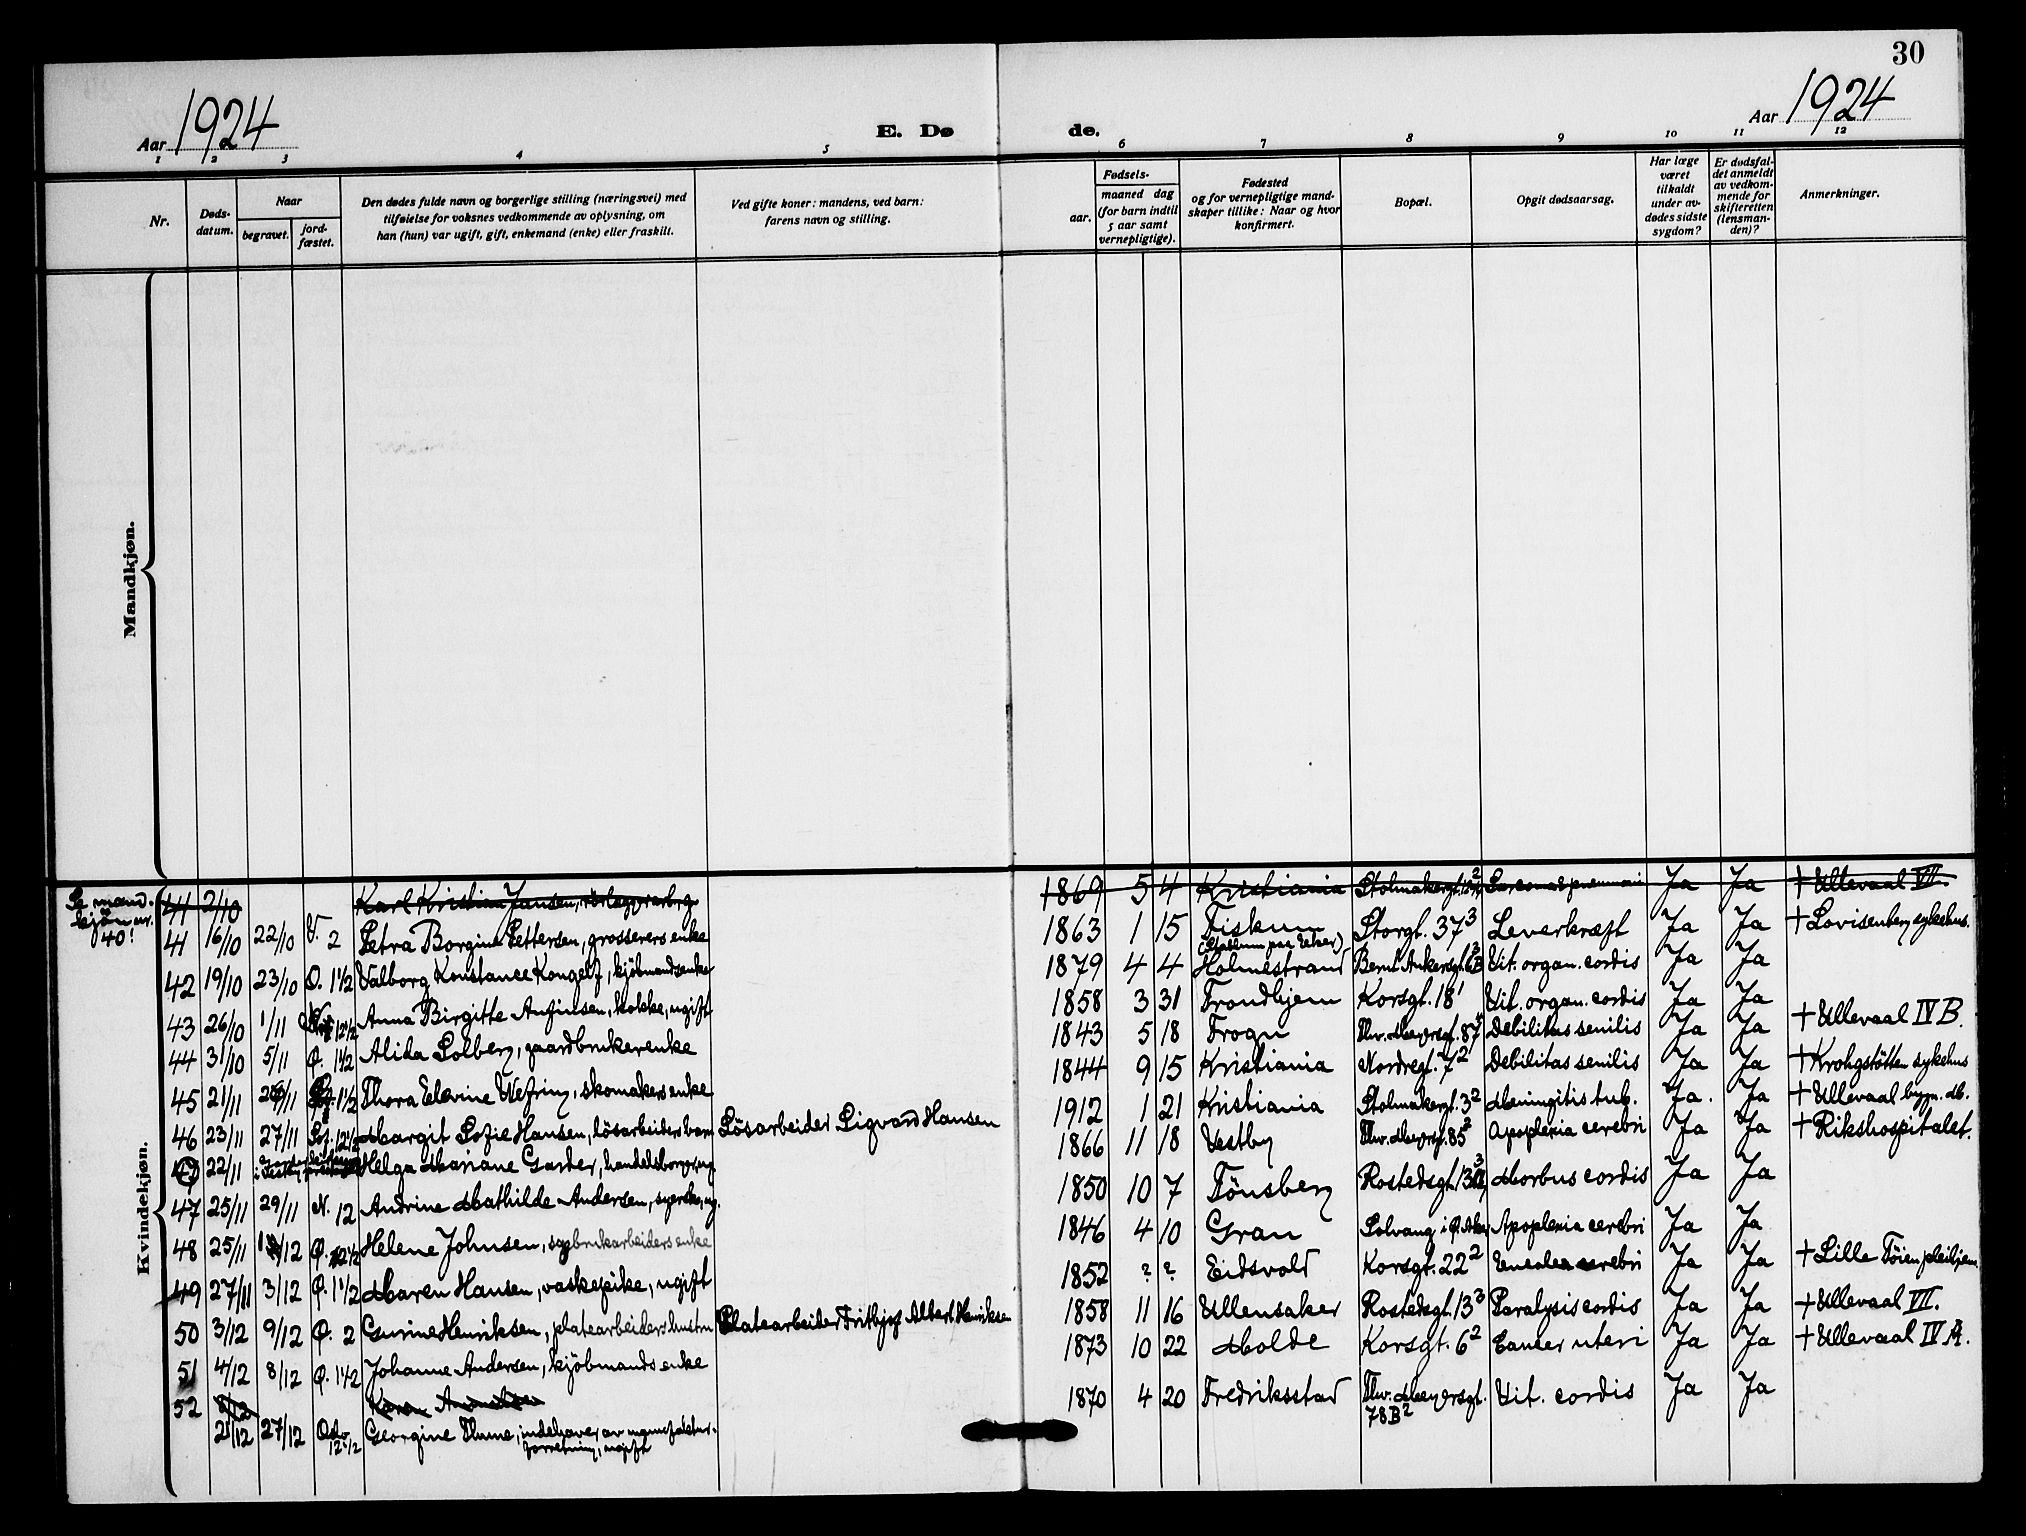 30
Aar 1924
E. Dø
de.
Aar 1924
1 2 3 4 5 6 7 8 9 10 11 12
Nr.
Døds-
datum.
Naar
begravet.
jord-
fæstet.
Den dødes fulde navn og borgerlige stilling (næringsvei) med
tilføielse for voksnes vedkommende av oplysning, om
han (hun) var ugift, gift, enkemand (enke) eller fraskilt.
Ved gifte koner: mandens, ved barn:
farens navn og stilling.
Fødsels-
aar.
maaned dag
(for barn indtil
5 aar samt
vernepligtige).
Fødested
og for vernepligtige mand-
skaper tillike: Naar og hvor
konfirmert.
Bopæl.
Opgit dødsaarsag.
Har læge
været
tilkaldt
under av-
dødes sidste
sygdom?
Er dødsfal-
det anmeldt
av vedkom-
mende for
skifteretten
(lensman-
den)?
Anmerkninger.
Mandkjøn.
Kvindekjøn.
Se mand-
kjön nr.
40!
41 2/10 Karl Kristian Jansen, 1869 5 4 Kristiania Ja Ja + Ullevaal VII.
41 16/10 22/10 V. 2 Petra Borgine Pettersen, grosserers enke 1863 1 15 Fiskum Storgt. 37³ Leverkræft Ja Ja + Lovisenberg sykehus.
42 19/10 23/10 O. 1½ Valborg Konstance Kongelf, kjöbmandsenke 1879 4 4 Holmestrand Bernt Ankersgt. Vit. organ. cordis Ja Ja
43 26/10 1/11 12½ Anna Birgitte Anfinsen, kokke, ugift 1858 3 31 Trondhjem Korsgt. 18¹ Vit. organ. cordis Ja Ja
44 31/10 5/11 Ø. 1½ Alida Solberg, gaardbrukerenke 1843 5 18 Frogn Thv. Meyersgt. 87 Debilitas senilis Ja Ja + Ullevaal IV B.
45 21/11 1½ Thora Elevine Wefring, skomakers enke 1844 9 15 Kristiania Nordregt. 7² Debilitas senilis Ja Ja + Krohgstötten sykehus
46 23/11 27/11 Sof. 12½ Margit Sofie Hansen, lösarbeiders barn Lösarbeider Sigvard Hansen 1912 1 21 Kristiania Stolmakergt. 3² Meningitis tub. Ja. Ja + Ullevaal bygn. M.
47 22/11 Helga Mariane Garder, handelsborger, ug. 1866 11 18 Vestby Thv. Meyersgt. 85² Apoplexia cerebri Ja Ja + Rikshospitalet.
47 25/11 29/11 N. 12 Andrine Mathilde Andersen, syerske, ug. 1850 10 7 Tönsberg Rostedsgt. Morbus cordis Ja Ja
48 25/11 1/12 Ø. 12½ Helene Johnsen, sagbrukarbeiders enke 1846 4 10 Gran Solvang i Ø. Aker Apoplexia cerebri Ja Ja
49 27/11 3/12 Ø. 1½ Maren Hansen, vaskepike, ugift 1852 ? ? Eidsvold Korsgt. 22² cerebri Ja Ja + Lille Töien pleiehjem.
50 3/12 9/12 Ø. 2 Gurine Henriksen, platearbeiders hustru Platearbeider Fritjof Albert Henriksen 1858 11 16 Ullensaker Rostedsgt. 13³ Paralysis cordis Ja Ja + Ullevaal VII.
51 4/12 8/12 Ø. 1½ Johanne Andersen, kjöbmands enke 1873 10 22 Molde Korsgt. 6² Cancer uteri Ja Ja + Ullevaal IV A.
52 Karen
21/12 27/12 Oslo 12½ Georgine Thune, indehaver av manufaktur- 1870 4 20 Fredriksstad Thv. Meyersgt. Vit. cordis Ja Ja
forretning, ugift 78B²